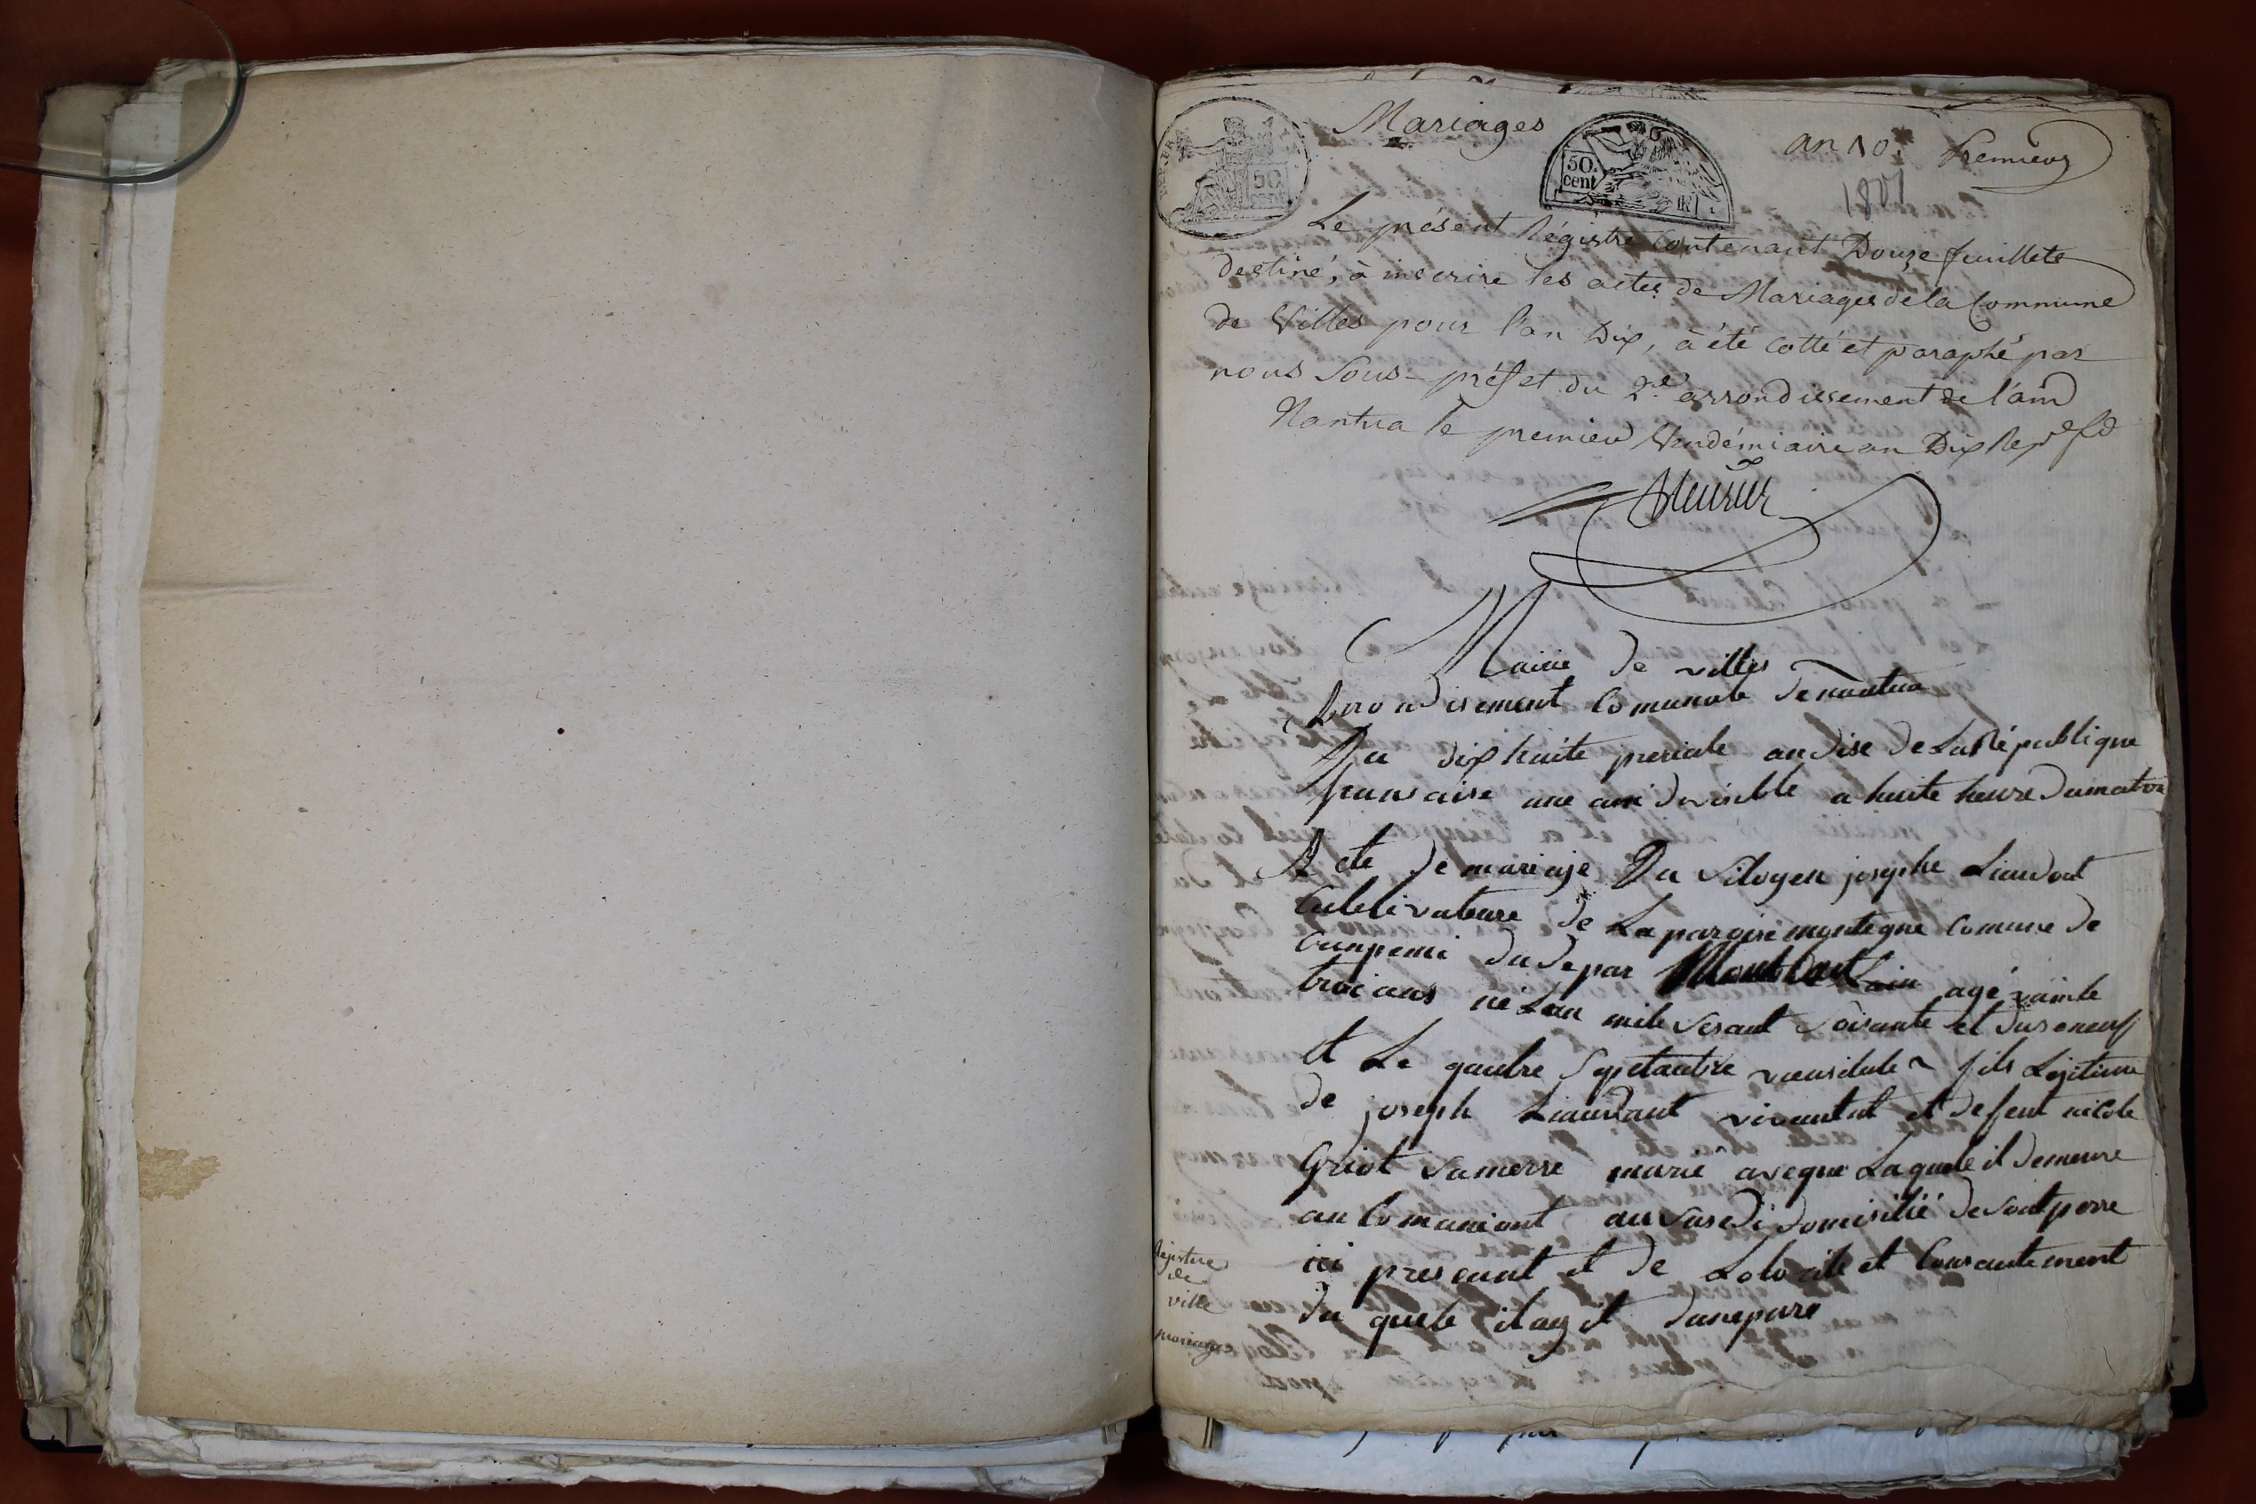 Mariages
an 10.
Premier
1801
50 cent
50. cent
Le présent Régistre Contenant Douze feuillets
destiné, à inscrire les actes de Mariages de la Commune
de Villes pour l'an Dix, à été cotté et paraphé par
nous Sous-préfet du 2e. arrondissement de l'ain
Nantua le premier Vendémiaire an Dix
Mairie de villes
Arrondisement Comunale de nantua
Du dix huite preriale an dise de La République
fransaise une ain'divisible a huite heure du matin
Acte de mariaje Du Sitoyen josephe Liaudout
Culetivateure de La paroise montegne Comune de
du depar Lain agé vainte
troi ans né Lan mile sesant soisante et dis oneuf
et Le quatre fils Lejitime
de joseph Liaudaut vivantut et defeut nicole
Griot samerre marie aveque Laquele il demeure
domisilié de soit perre
ici presount et de et Consantement
du quele il agit
Rejistre
de
ville
mariage